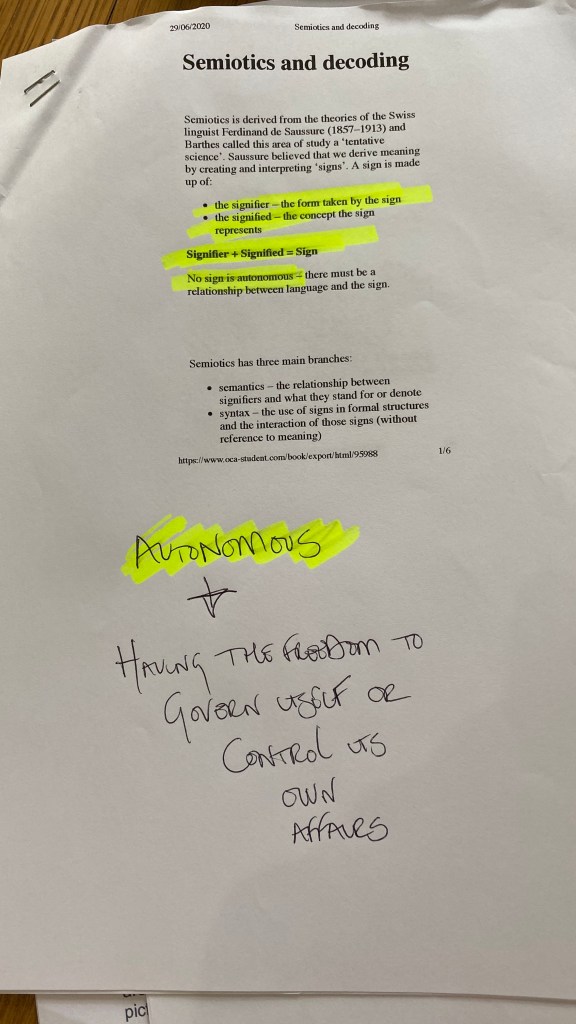 29/06/2020 Semiotics and decoding
Semiotics and decoding
Semiotics is derived from the theories of the Swiss
linguist Ferdinand de Saussure (1857–1913) and
Barthes called this area of study a ‘tentative
science’. Saussure believed that we derive meaning
by creating and interpreting ‘signs’. A sign is made
up of:
• the signifier – the form taken by the sign
• the signified – the concept the sign
represents
Signifier + Signified = Sign
No sign is autonomous – there must be a
relationship between language and the sign.
Semiotics has three main branches:
• semantics – the relationship between
signifiers and what they stand for or denote
• syntax – the use of signs in formal structures
and the interaction of those signs (without
reference to meaning)
https://www.oca-student.com/book/export/html/95988 1/6
AUTONOMOUS
HAVING THE FREEDOM TO
GOVERN ITSELF OR
CONTROL ITS
OWN
AFFAIRS
pic